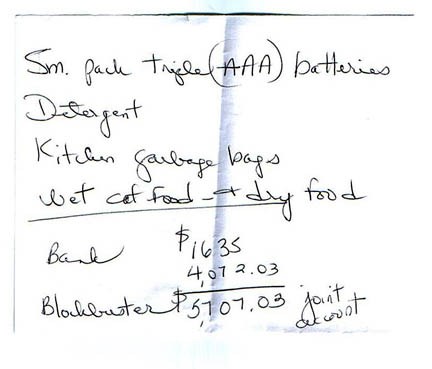 Sm. pack triple (AAA) batteries
Detergent
Kitchen garbage bags
wet cat food + dry food
Bank $1635
4,072.03
Blockbuster $5,707.03 joint account